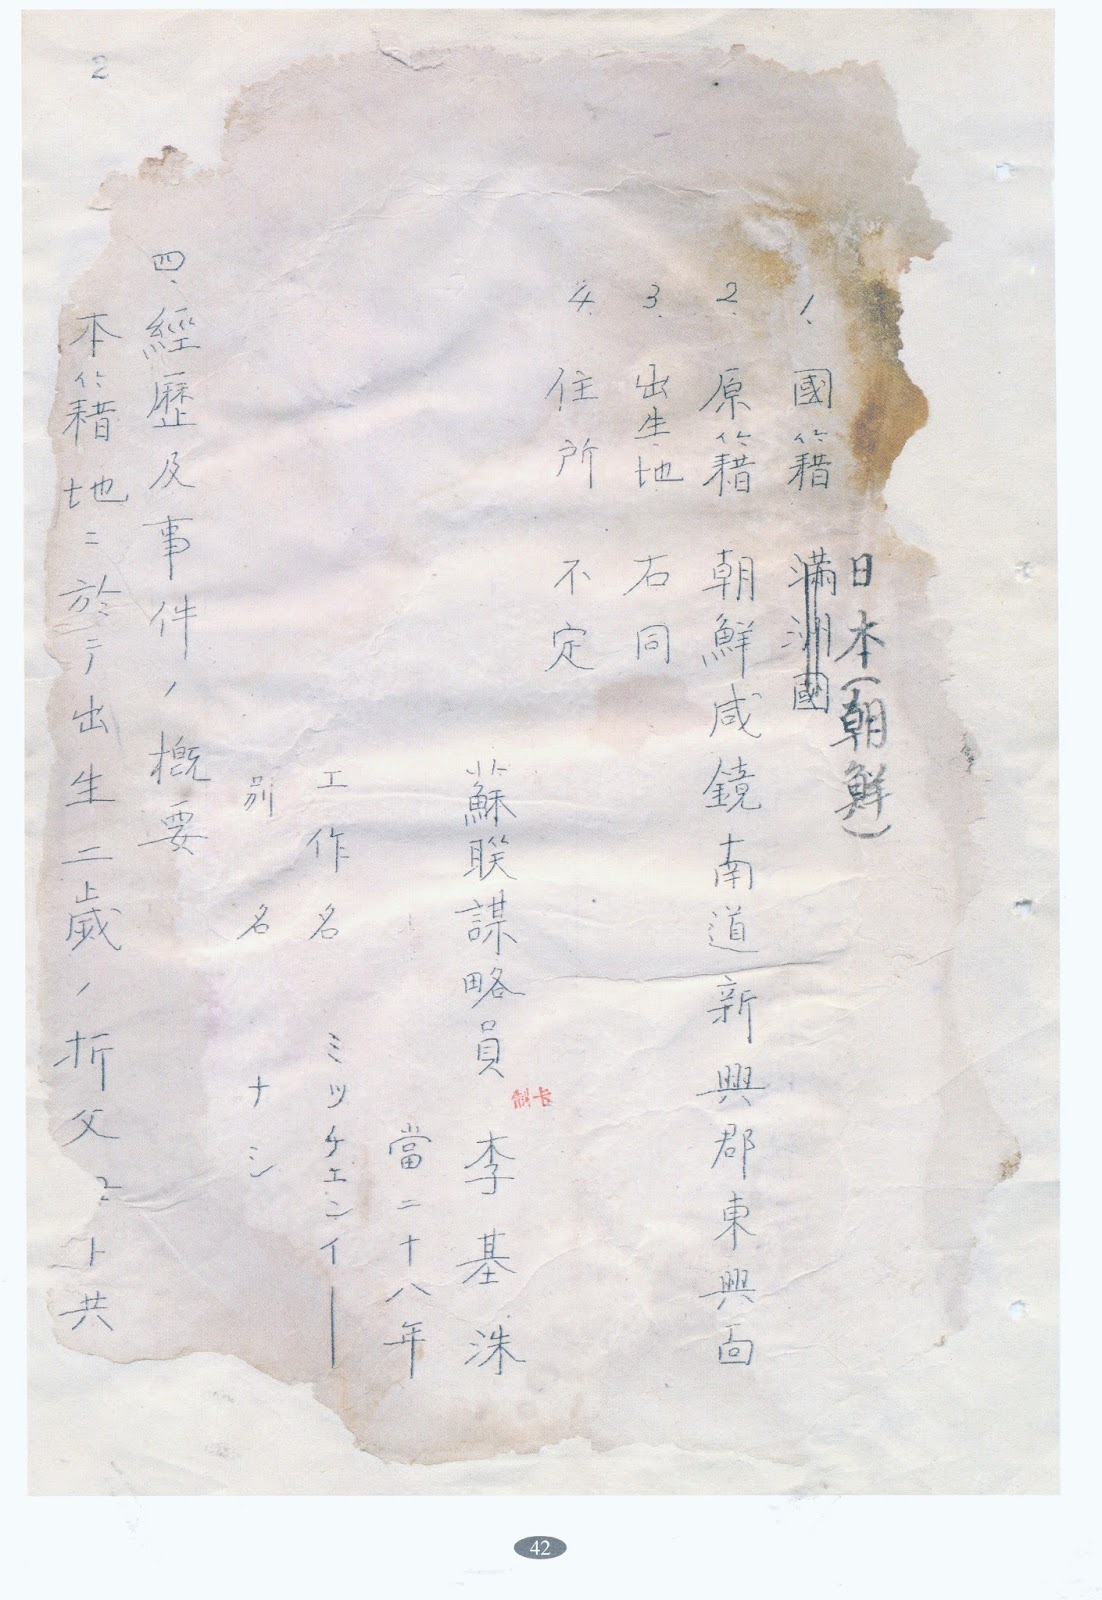 日本(朝鮮)
1. 國籍 滿洲國
2. 原籍 朝鮮咸鏡南道新興郡東興面
3. 出生地 右同
4. 住所 不定
蘇联謀略員 李基洙
制卡
當二十八年
工作名 ミッチェンイー
別名 ナシ
四、經歷及事件ノ概要
本籍地ニ於テ出生二歲ノ折父ト共
2
42